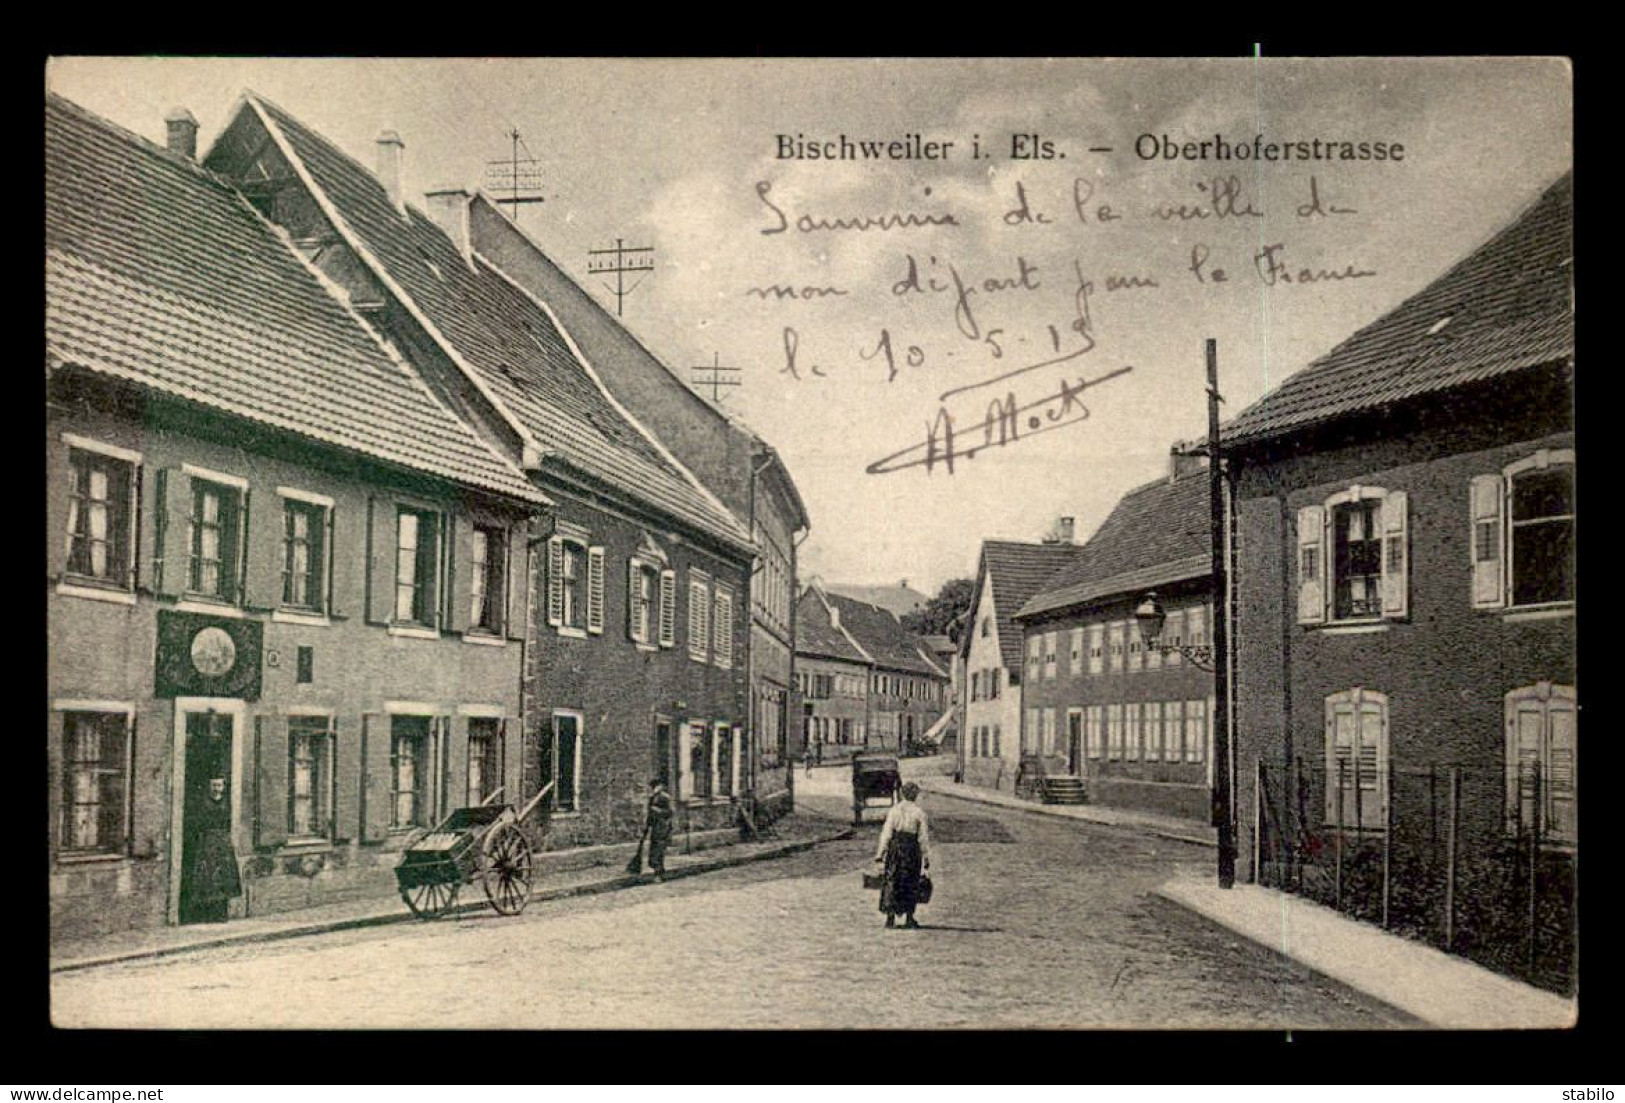 Bischweiler i. Els. – Oberhoferstrasse
Souvenir de la veille de
mon départ pour la France
le 10-5-19
Mock
delcampe.net
stabilo